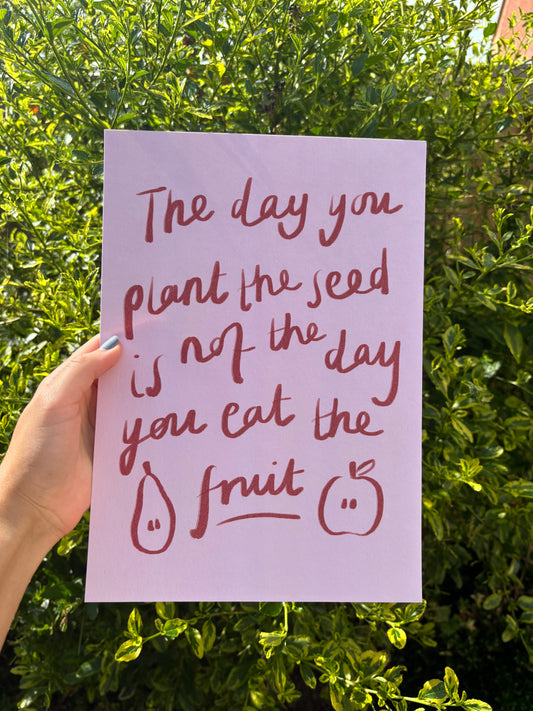 The day you
plant the seed
is not the day
you eat the
fruit